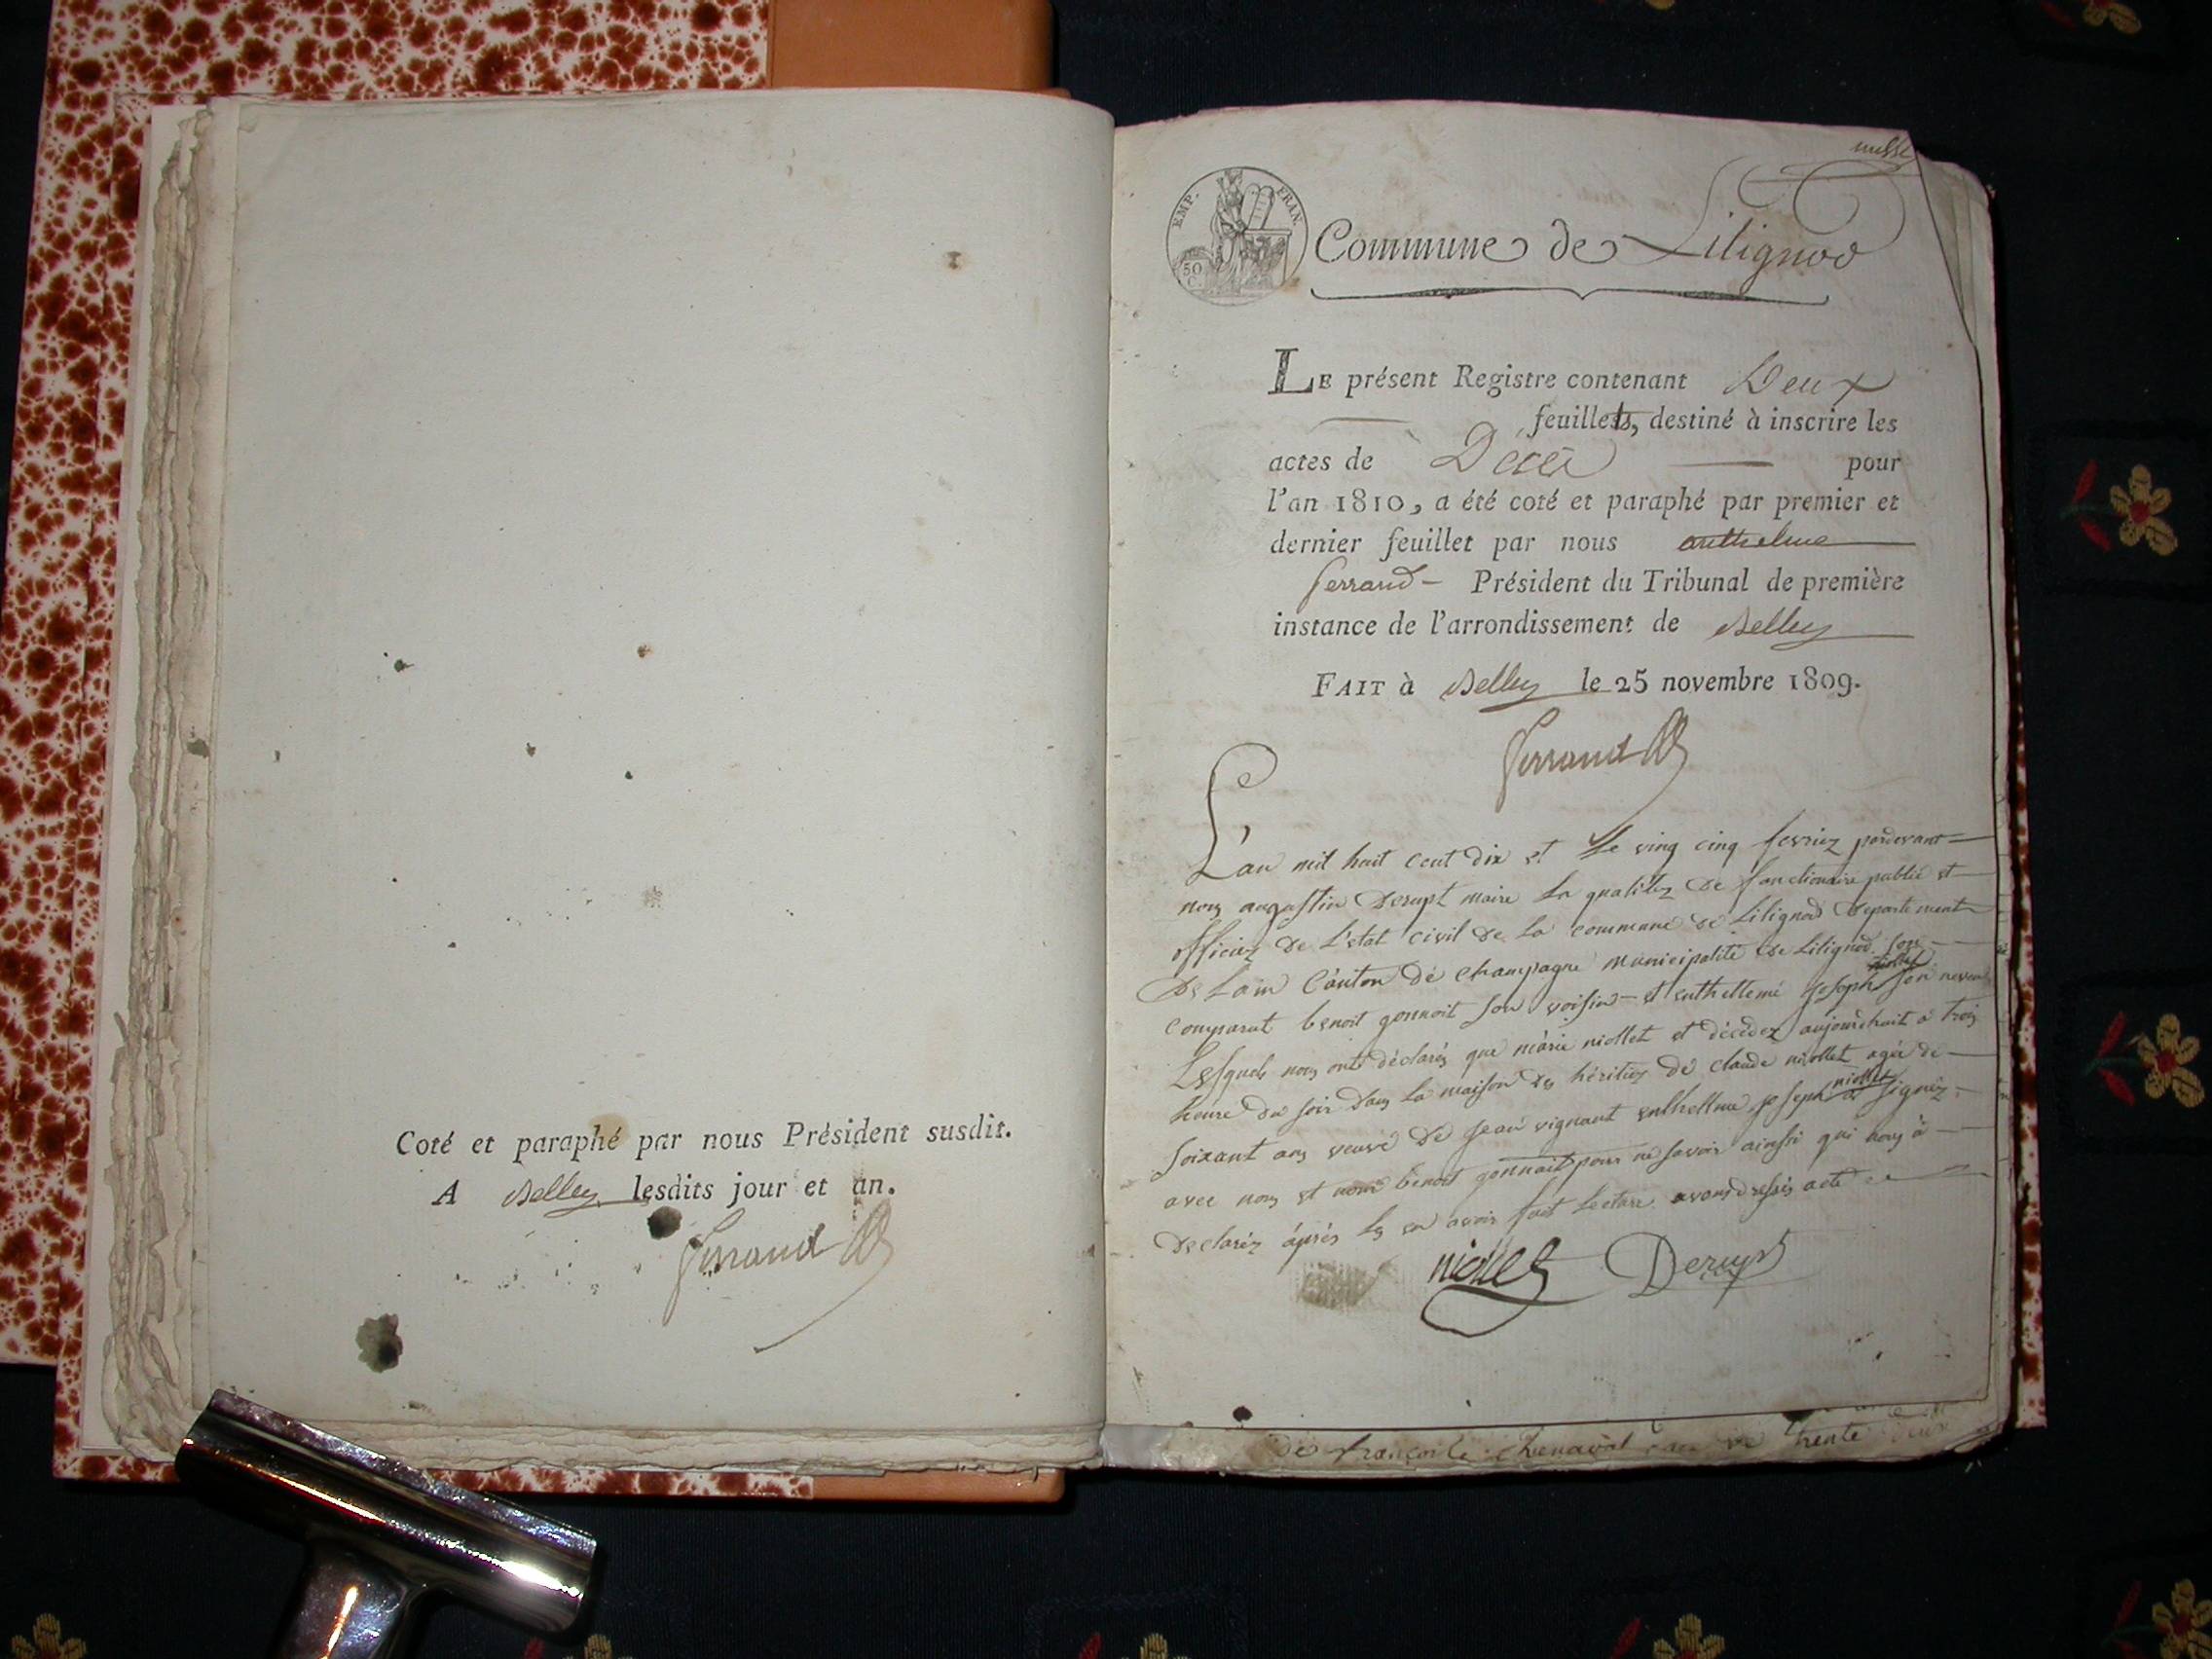 Coté et paraphé par nous Président susdit.
A Belley lesdits jour et an.
Ferrand
EMP. FRAN.
50
C.
Commune de Lilignod
LE présent Registre contenant Deux
feuillets, destiné à inscrire les
actes de Décès pour
l'an 1810, a été coté et paraphé par premier et
dernier feuillet par nous anthelme
ferrand Président du Tribunal de première
instance de l'arrondissement de Belley
FAIT à Belley le 25 novembre 1809.
Ferrand
L'an mil huit cent dix et le ving cinq fevriez pardevant
nous augustin Derupt maire la qualitez de fonctionaire public et
officiez de L'etat civil de la commune de Lilignod departement
De Lain Canton de champagne municipalité de Lilignod sont
comparut benoit gonnoit son voisin et enthellemé joseph niollet son neveu
Lesquels nous ont déclarés que marie niollet et décédez aujourdhuit a trois
heure du soir dans la maison des héritiez de claude niollet agée de
soixant ans veuve de jean vignant enthellme joseph niollet a signéz
avec nous et non benoit gonnait pour ne savoir ainssi qui nous à
declaréz áprés les en avoir fait lecture avons dressés acte
niollet Derupt
de françoise chenavat trente deux